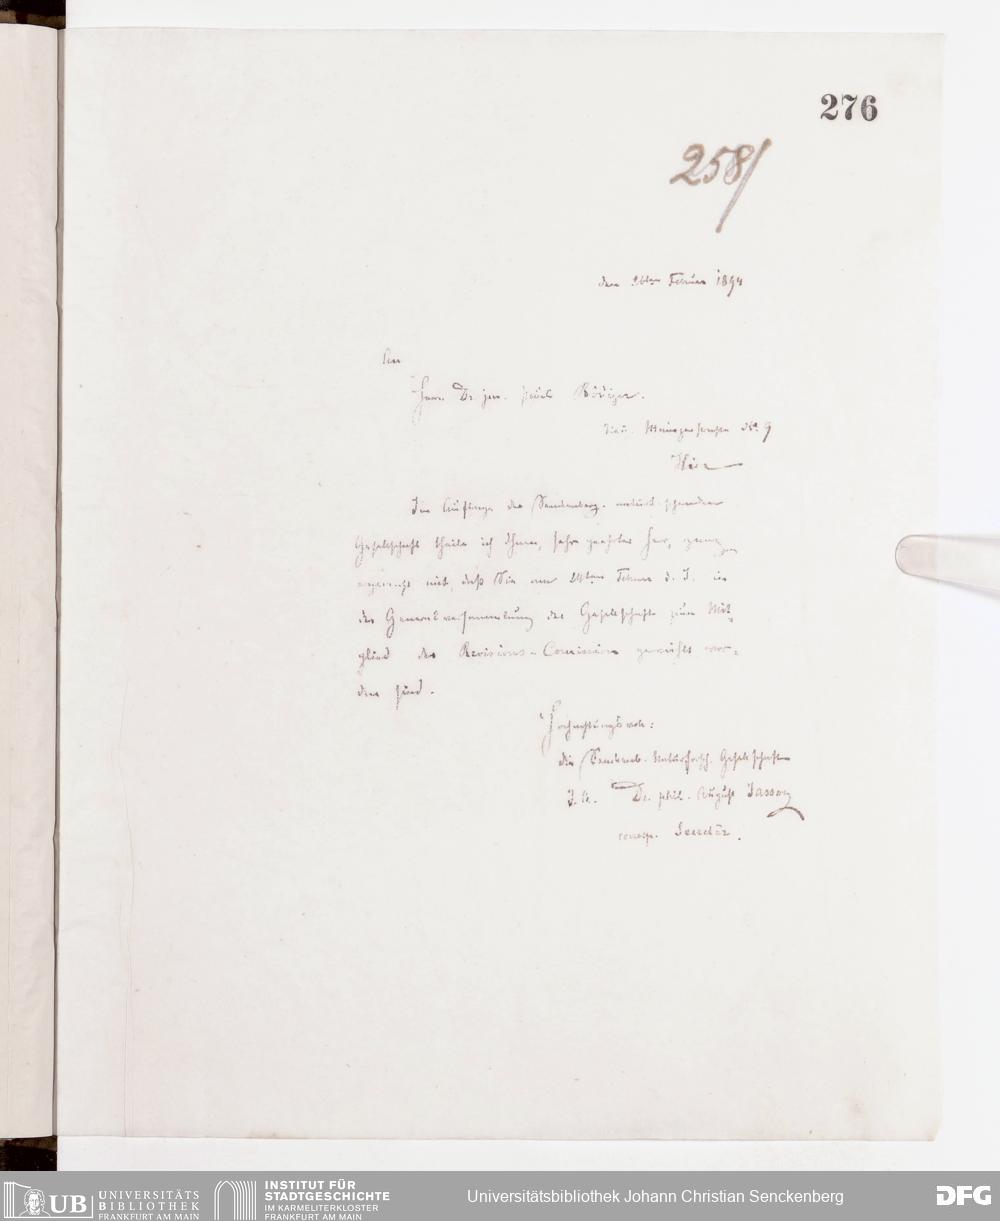 276
258/
den 26ten Februar 1894
An
Herrn Dr. jur. Paul Rödiger.
Neue Mainzerstrasse No. 9
Hier
Im Auftrage der Senckenberg. naturforschenden
Gesellschaft theile ich Ihnen, sehr geehrter Herr, ganz
ergebenst mit, daß Sie am 24ten Februar d. J. in
der Generalversammlung der Gesellschaft zum Mit
glied der Revisions-Comission gewählt wor-
den sind.
Hochachtungsvoll:
die Senckenb. Naturforsch. Gesellschaft
Dr. phil. August Jassoy
corresp. Secretär.
UB UNIVERSITÄTS
BIBLIOTHEK
FRANKFURT AM MAIN
INSTITUT FÜR
STADTGESCHICHTE
IM KARMELITERKLOSTER
FRANKFURT AM MAIN
Universitätsbibliothek Johann Christian Senckenberg
DFG